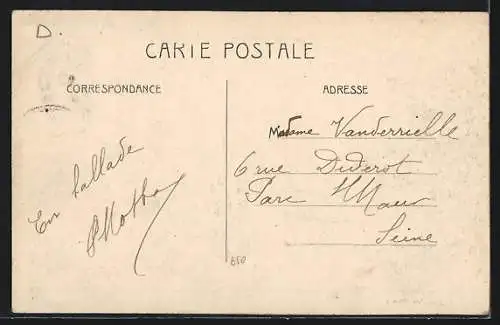 D.
CARTE POSTALE
CORRESPONDANCE
ADRESSE
En ballade
Madame Vanderrielle
6 rue Diderot
Parc St Maur
Seine
650